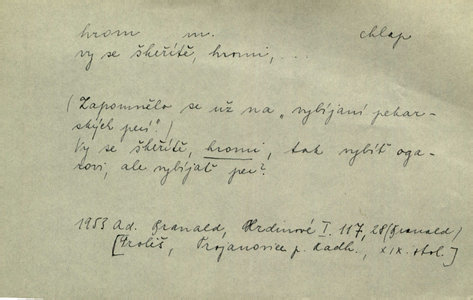 hrom m. chlap
vy se škeřítě, hromi, ...
(Zapomnělo se už na „vybíjaní pekar-
ských pecí.")
Vy se škeřítě, hromi, tak vybít oga-
rovi, ale vybíjat pec?
1953 Ad. Branald, Hrdinové I. 117, 28 (Branald)
[Troliš, Trojanovice p. Radh., XIX. stol.]